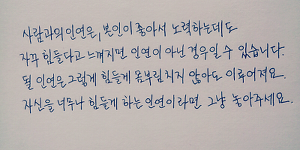 사람과의 인연은, 본인이 좋아서 노력하는데도
자꾸 힘들다고 느껴지면 인연이 아닌 경우일 수 있습니다.
될 인연은 그렇게 힘들게 몸부림치지 않아도 이루어져요.
자신을 너무나 힘들게 하는 인연이라면 그냥 놓아주세요.